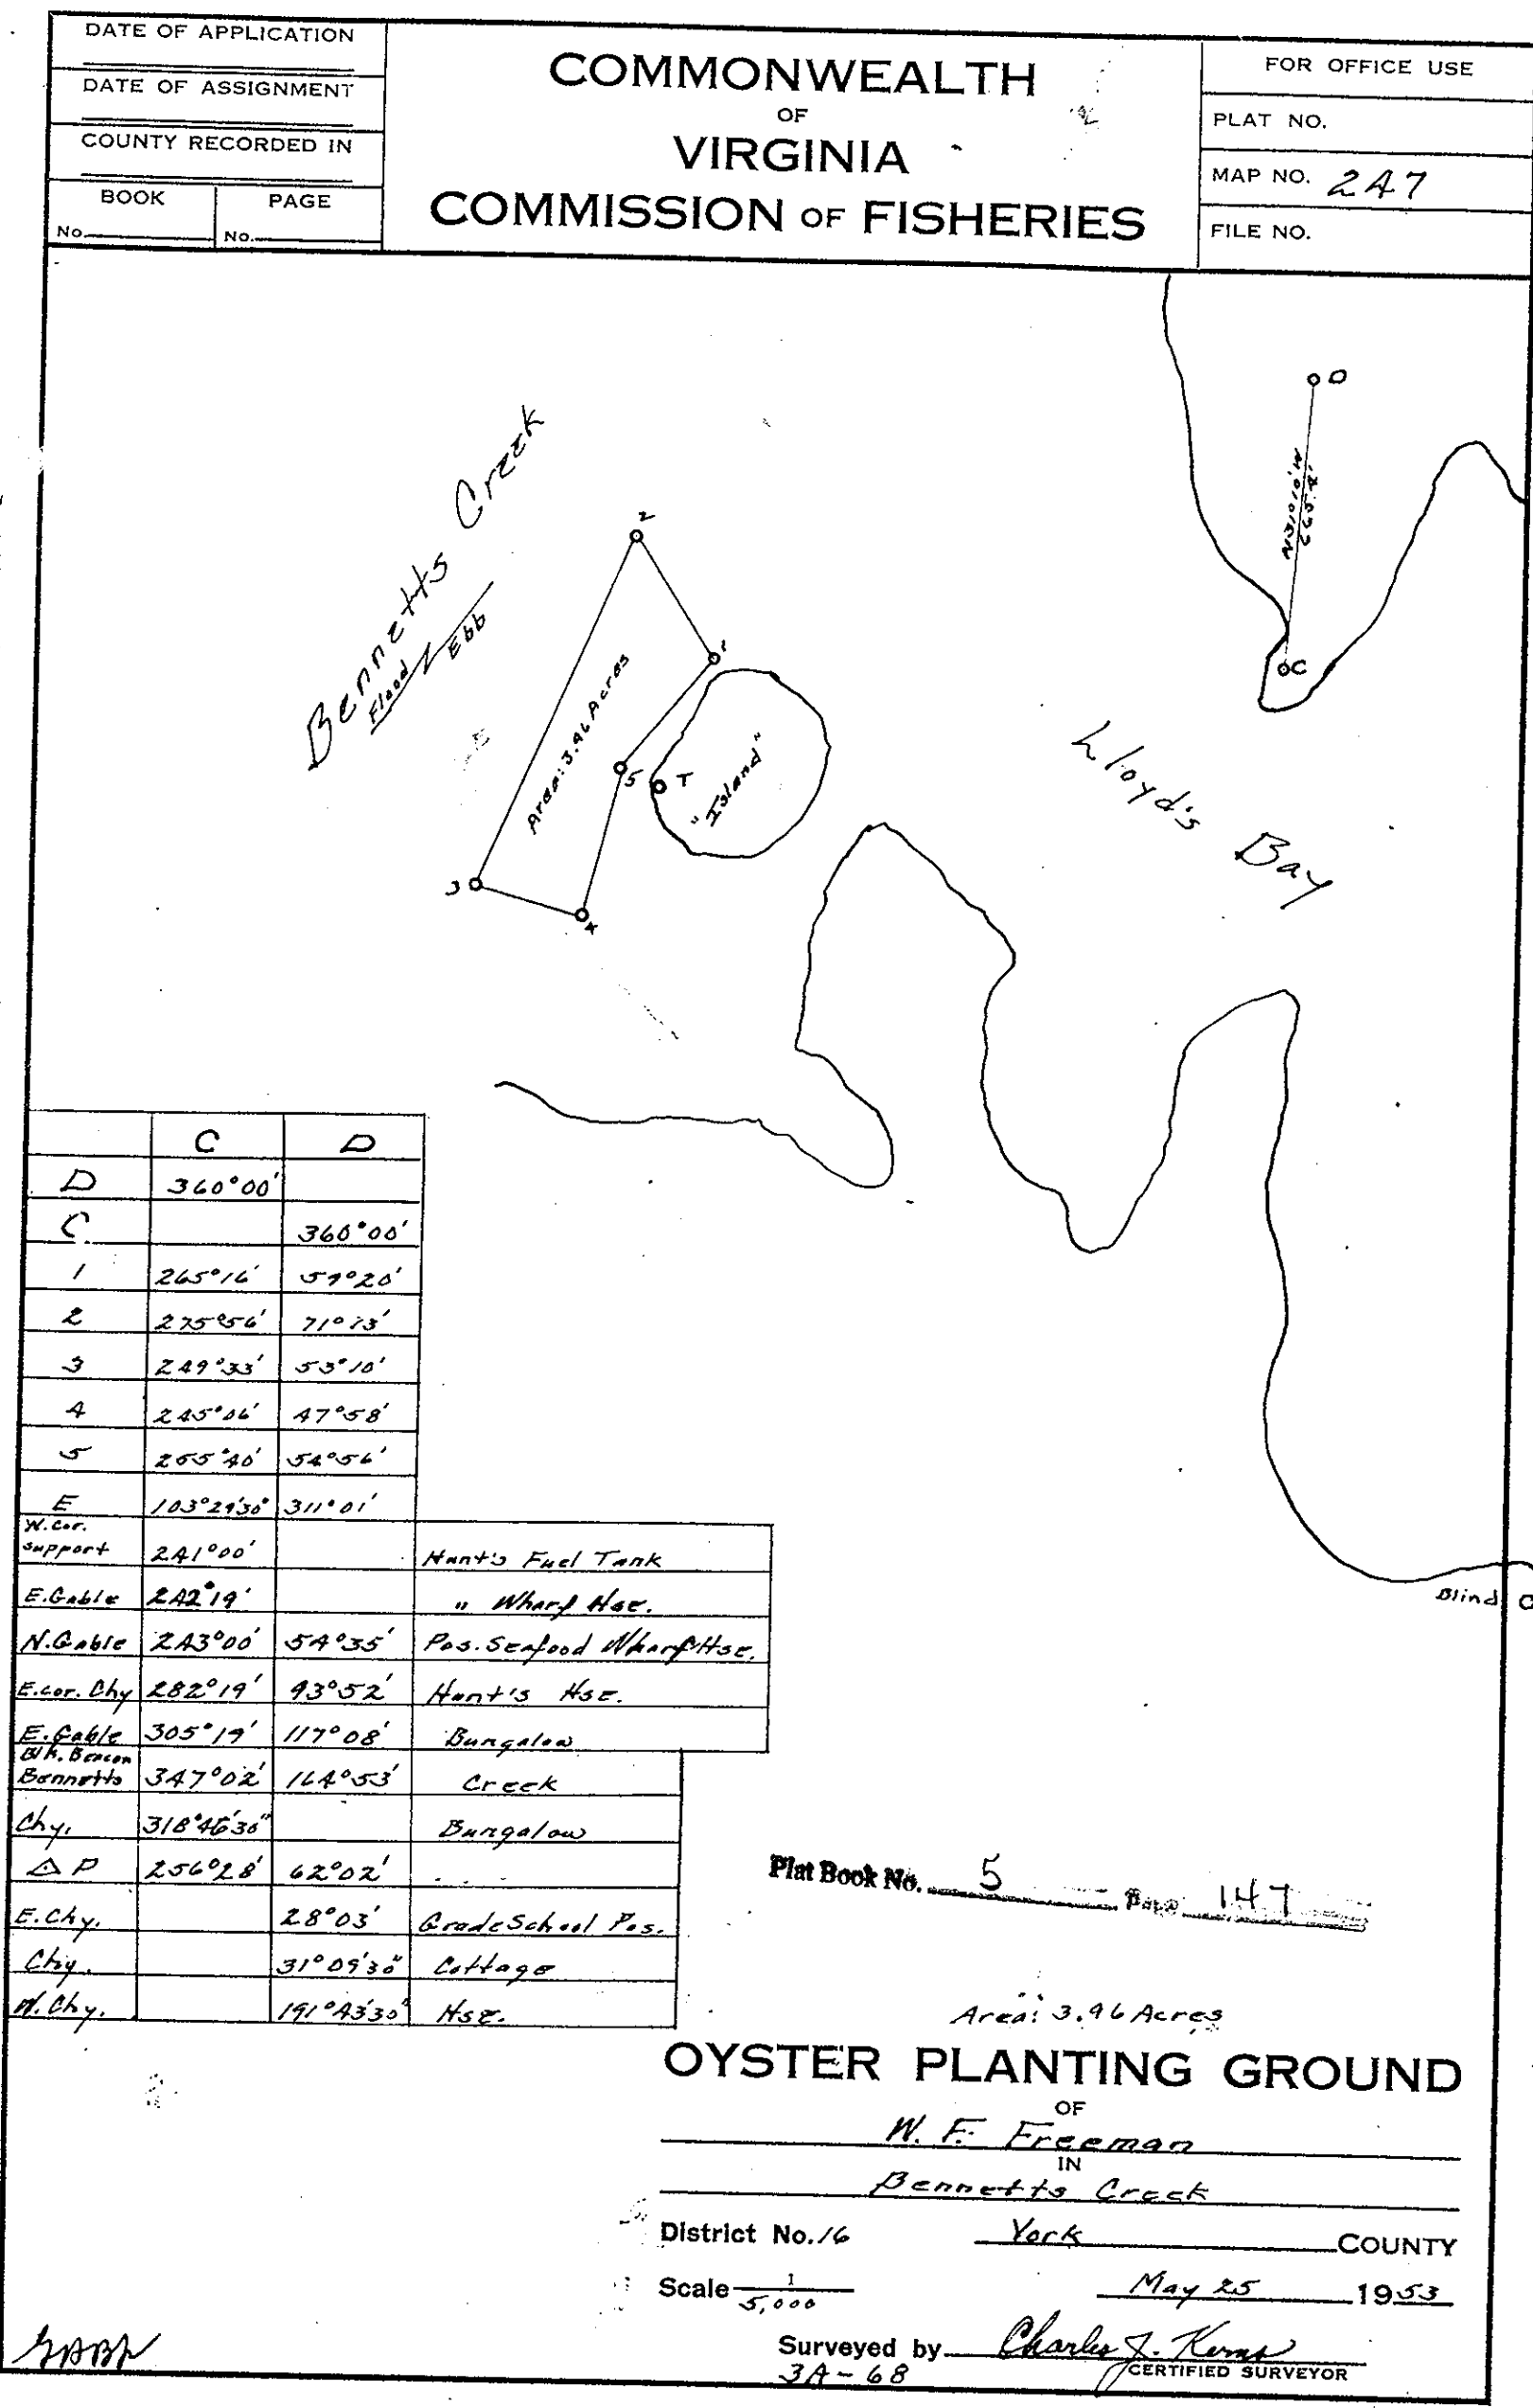 DATE OF APPLICATION
DATE OF ASSIGNMENT
COUNTY RECORDED IN
BOOK PAGE
No. No.
COMMONWEALTH
OF
VIRGINIA
COMMISSION OF FISHERIES
FOR OFFICE USE
PLAT NO.
MAP NO. 247
FILE NO.
D
N31°10'W
665.4'
C
Bennetts Creek
Flood Ebb
2
1
Area: 3.96 Acres
5
T
"Island"
3
4
Lloyd's Bay
C D
D 360°00'
C 360°00'
1 265°16' 59°20'
2 275°56' 71°13'
3 249°33' 53°10'
4 245°06' 47°58'
5 255°40' 54°56'
E 103°29'30" 311°01'
W. Cor. support 241°00' Hunt's Fuel Tank
E. Gable 242°19' " Wharf Hse.
N. Gable 243°00' 54°35' Pos. Seafood Wharf Hse.
E. cor. Chy 282°19' 93°52' Hunt's Hse.
E. Gable 305°19' 117°08' Bungalow
Blk. Beacon Bennetts 347°02' 164°53' Creek
Chy. 318°46'30" Bungalow
△ P 256°28' 62°02'
E. Chy. 28°03' Grade School Pos.
Chy. 31°09'30" Cottage
W. Chy. 191°43'30" Hse.
Blind C
Plat Book No. 5 Page 147
Area: 3.96 Acres
OYSTER PLANTING GROUND
OF
W. F. Freeman
IN
Bennetts Creek
District No. 16 York COUNTY
Scale 1/5,000 May 25 1953
Surveyed by Charles J. Kerns
CERTIFIED SURVEYOR
3A-68